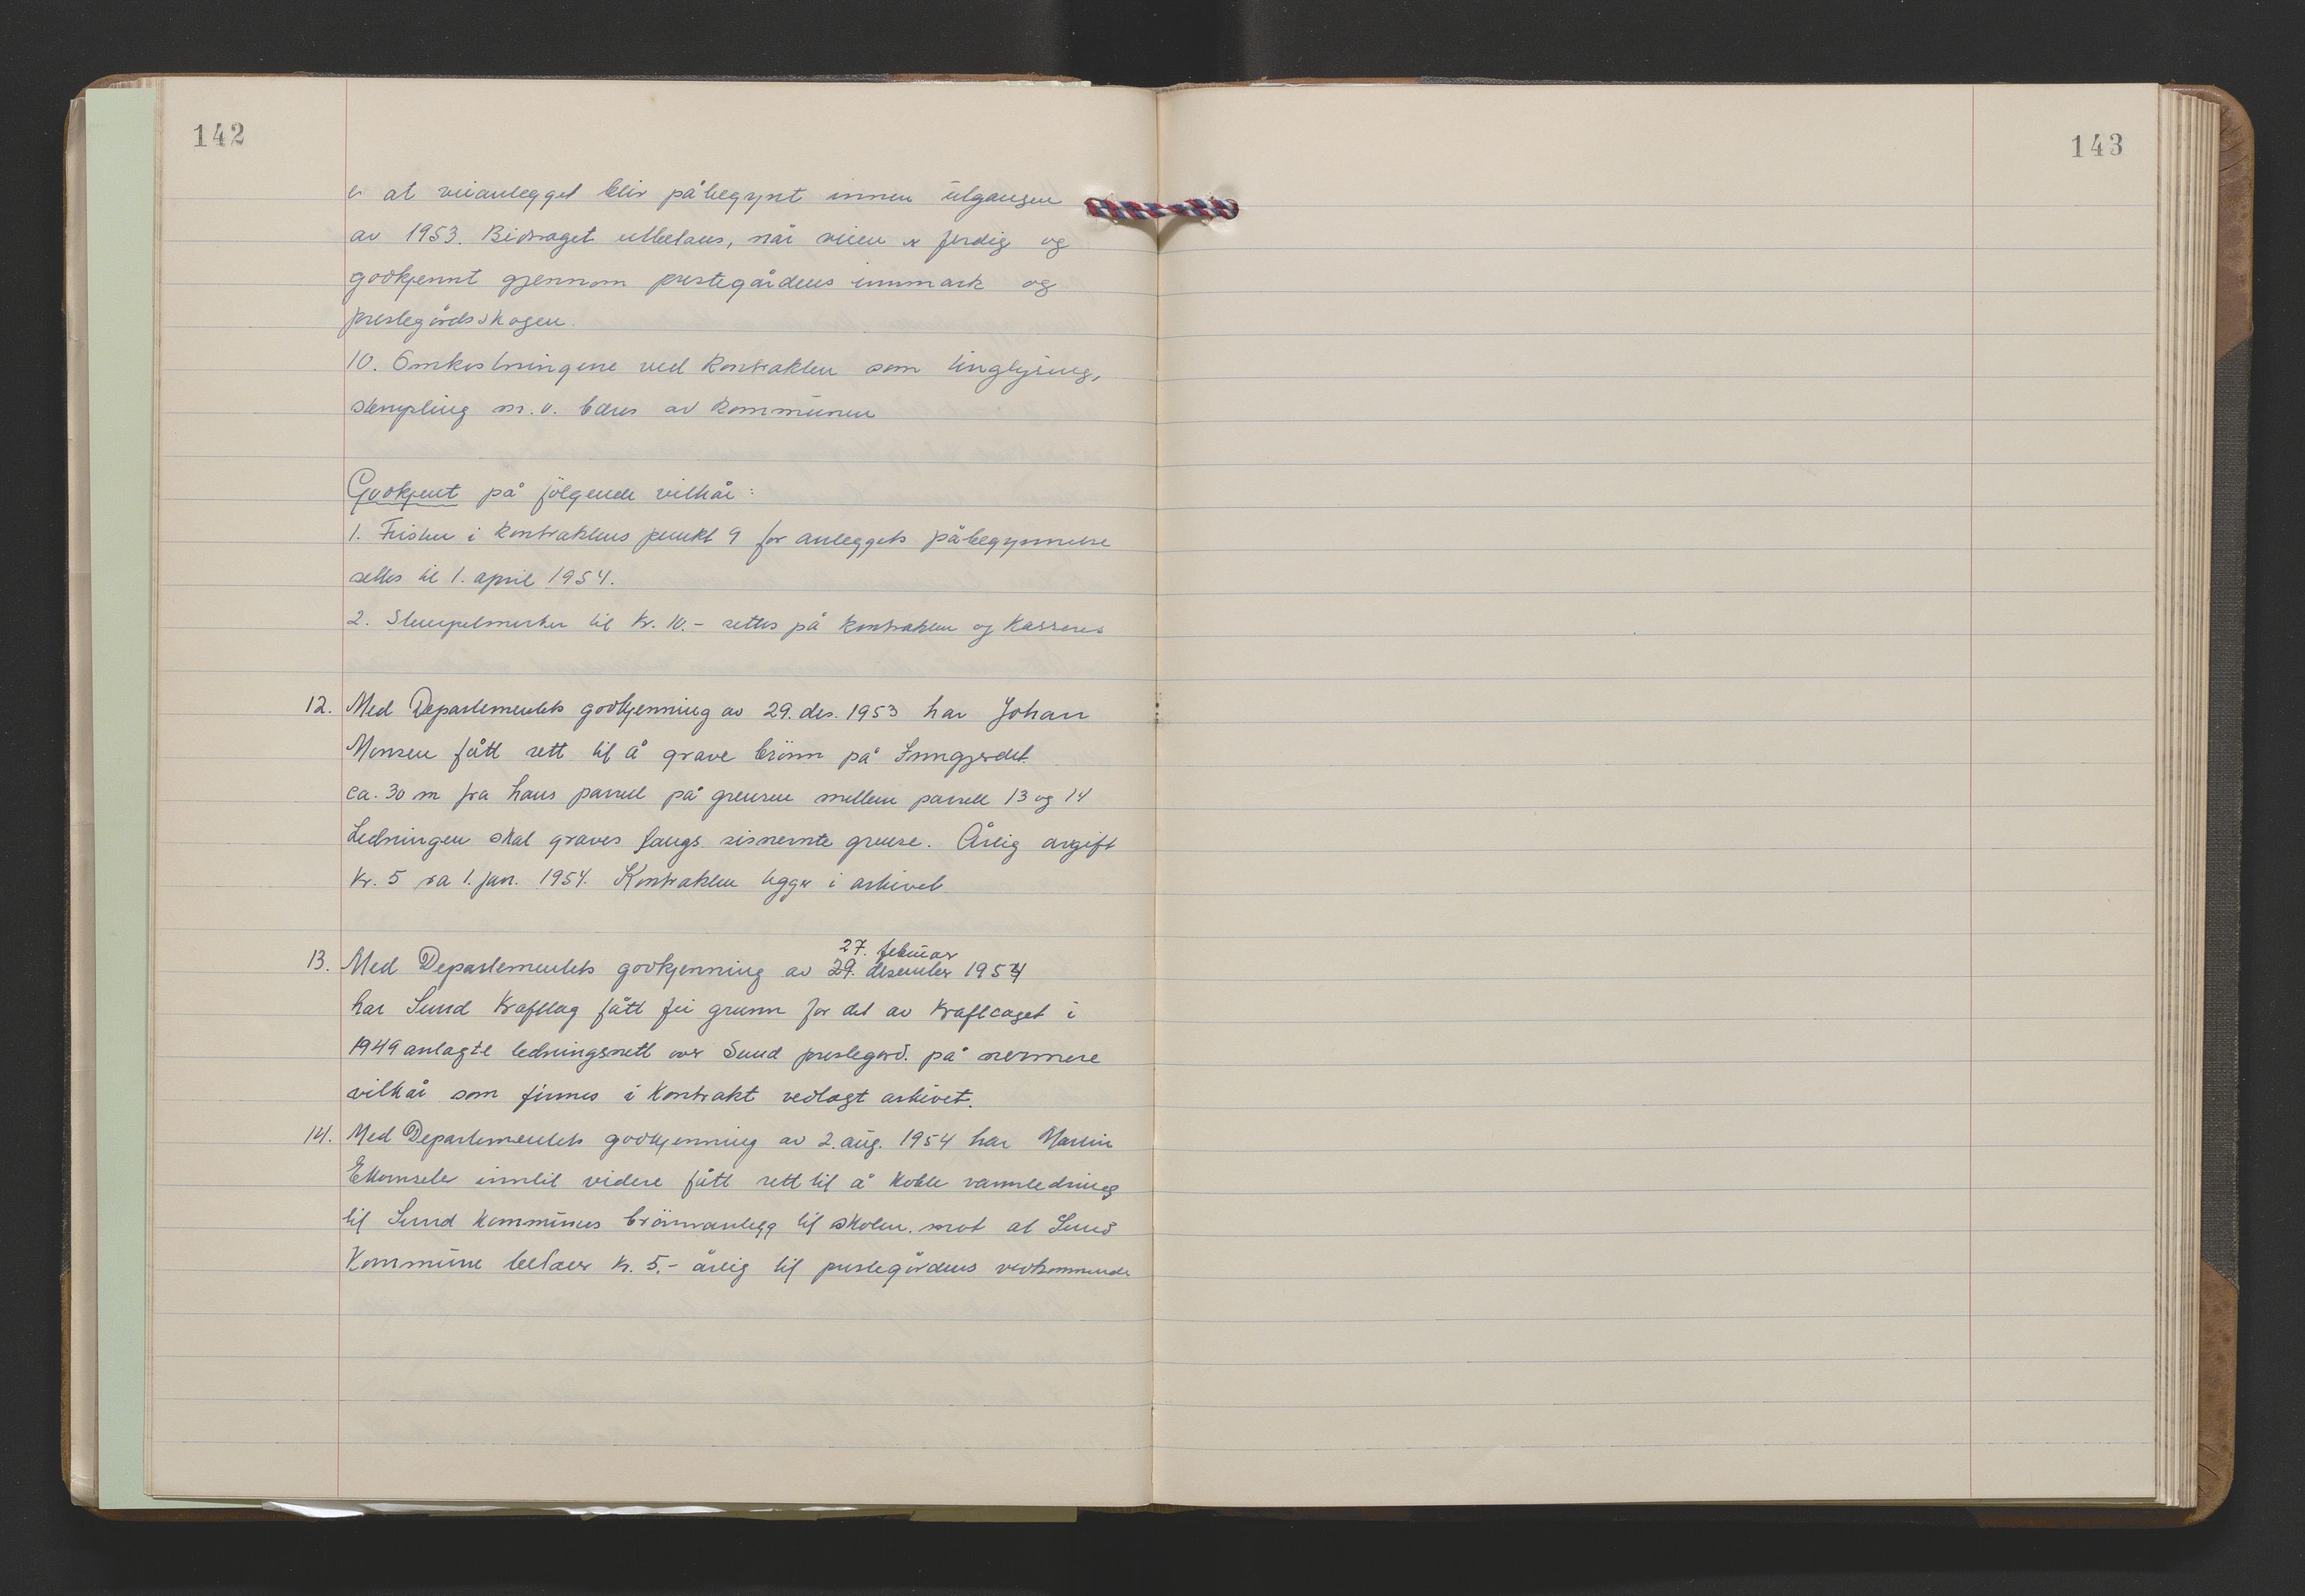 142
143
er at veianlegget blir påbegynt innen utgangen
av 1953. Bidraget utbetales, når veien er ferdig og
godkjennt gjennom prestegårdens innmark og
prestegårdsskogen.
10. Omkostningene ved kontrakten som tinglysing,
stempling m.v. bæres av kommunen
Godkjent på følgende vilkår:
1. Fristen i kontraktens punkt 9 for anleggets påbegynnelse
settes til 1. april 1954.
2. Stempelmerker til kr. 10.- settes på kontrakten og kasseres
12. Med Departementets godkjenning av 29. des. 1953 har Johan
Monsen fått rett til å grave brønn på Inngjerdet
ca. 30 m fra hans parsell på grensen mellem parsell 13 og 14
Ledningen skal graves langs sisnemte grense. Årlig avgift
kr. 5 fra 1. jan. 1954. Kontrakten ligger i arkivet
27. februar
13. Med Departementets godkjenning av 29. desember 1954
har Sund Kraftlag fått fri grunn for det av Kraftlaget i
1949 anlagte ledningsnett over Sund prestegård. på nermere
vilkår som finnes i kontrakt vedlagt arkivet.
14. Med Departementets godkjenning av 2. aug. 1954 har Martin
inntil videre fått rett til å koble vannledning
til Sund kommunes brønnanlegg til skolen. mot at Sund
Kommune betaler kr. 5.- årlig til prestegårdens vedkommende